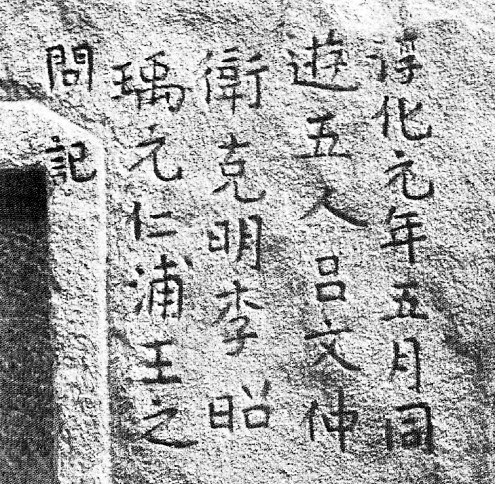 淳化元年五月同
遊五人吕文仲
衛克明李昭
瑀元仁浦王之
問記